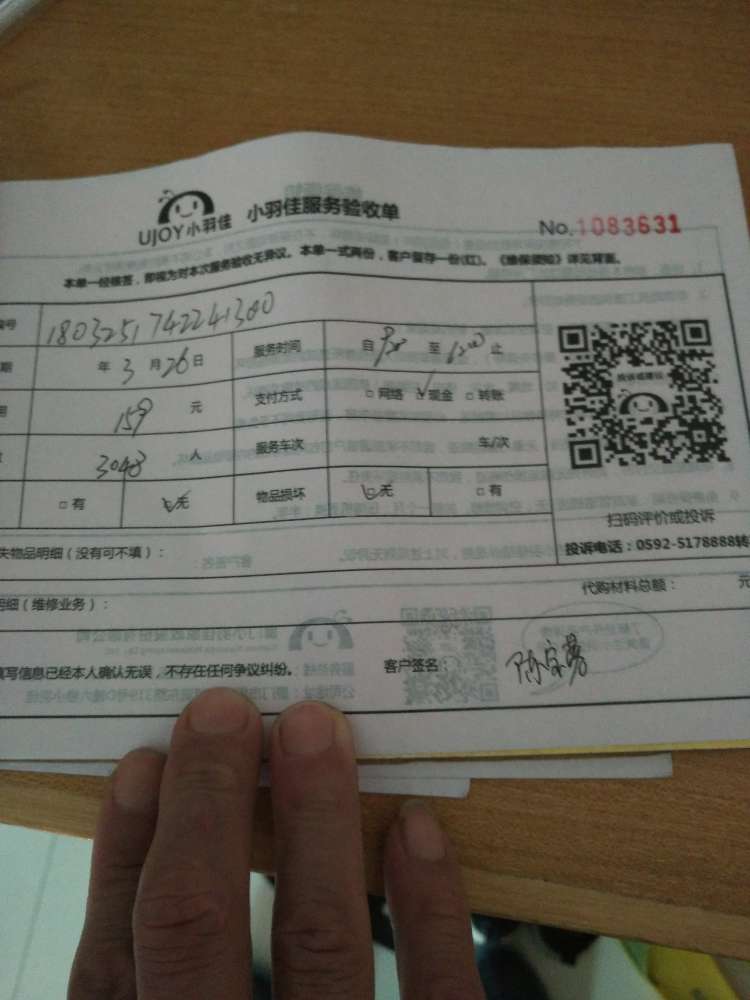 UJOY小羽佳 小羽佳服务验收单
No.1083631
本单一经核签，即视为对本次服务验收无异议。本单一式两份，客户留存一份(红)。《维保须知》详见背面。
号 1803251742241300
期 年3月26日 服务时间 自 至 止
159元 支付方式 □网络 ☑现金 □转账
3048人 服务车次 车/次
□有 ☑无 物品损坏 ☑无 □有
投诉或建议
扫码评价或投诉
投诉电话：0592-5178888转
失物品明细（没有可不填）：
明细（维修业务）： 代购材料总额： 元
填写信息已经本人确认无误，不存在任何争议纠纷。 客户签名：